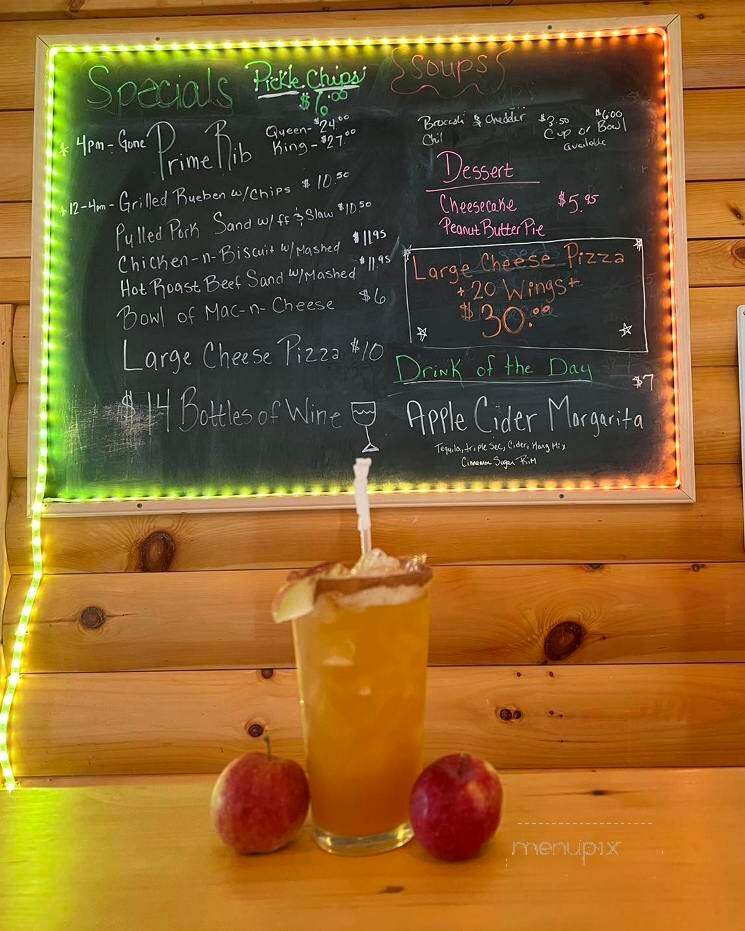 Specials
Pickle Chips
$6.00
* 4pm - Gone Prime Rib
Queen - $24.00
King - $27.00
*12-4pm - Grilled Rueben w/Chips $10.50
Pulled Pork Sand w/ ff & Slaw $10.50
Chicken-n-Biscuit w/Mashed $11.95
Hot Roast Beef Sand w/Mashed $11.95
Bowl of Mac-n-Cheese $6
Large Cheese Pizza $10
$14 Bottles of Wine
{Soups}
Broccoli & Chedder
Chili
$3.50 $6.00
Cup or Bowl
available
Dessert
Cheesecake $5.95
Peanut Butter Pie
Large Cheese Pizza
+ 20 Wings +
$30.00
Drink of the Day
$7
Apple Cider Margarita
Tequila, triple sec, Cider, Marg Mix
Cinnamon Sugar Rim
menupix